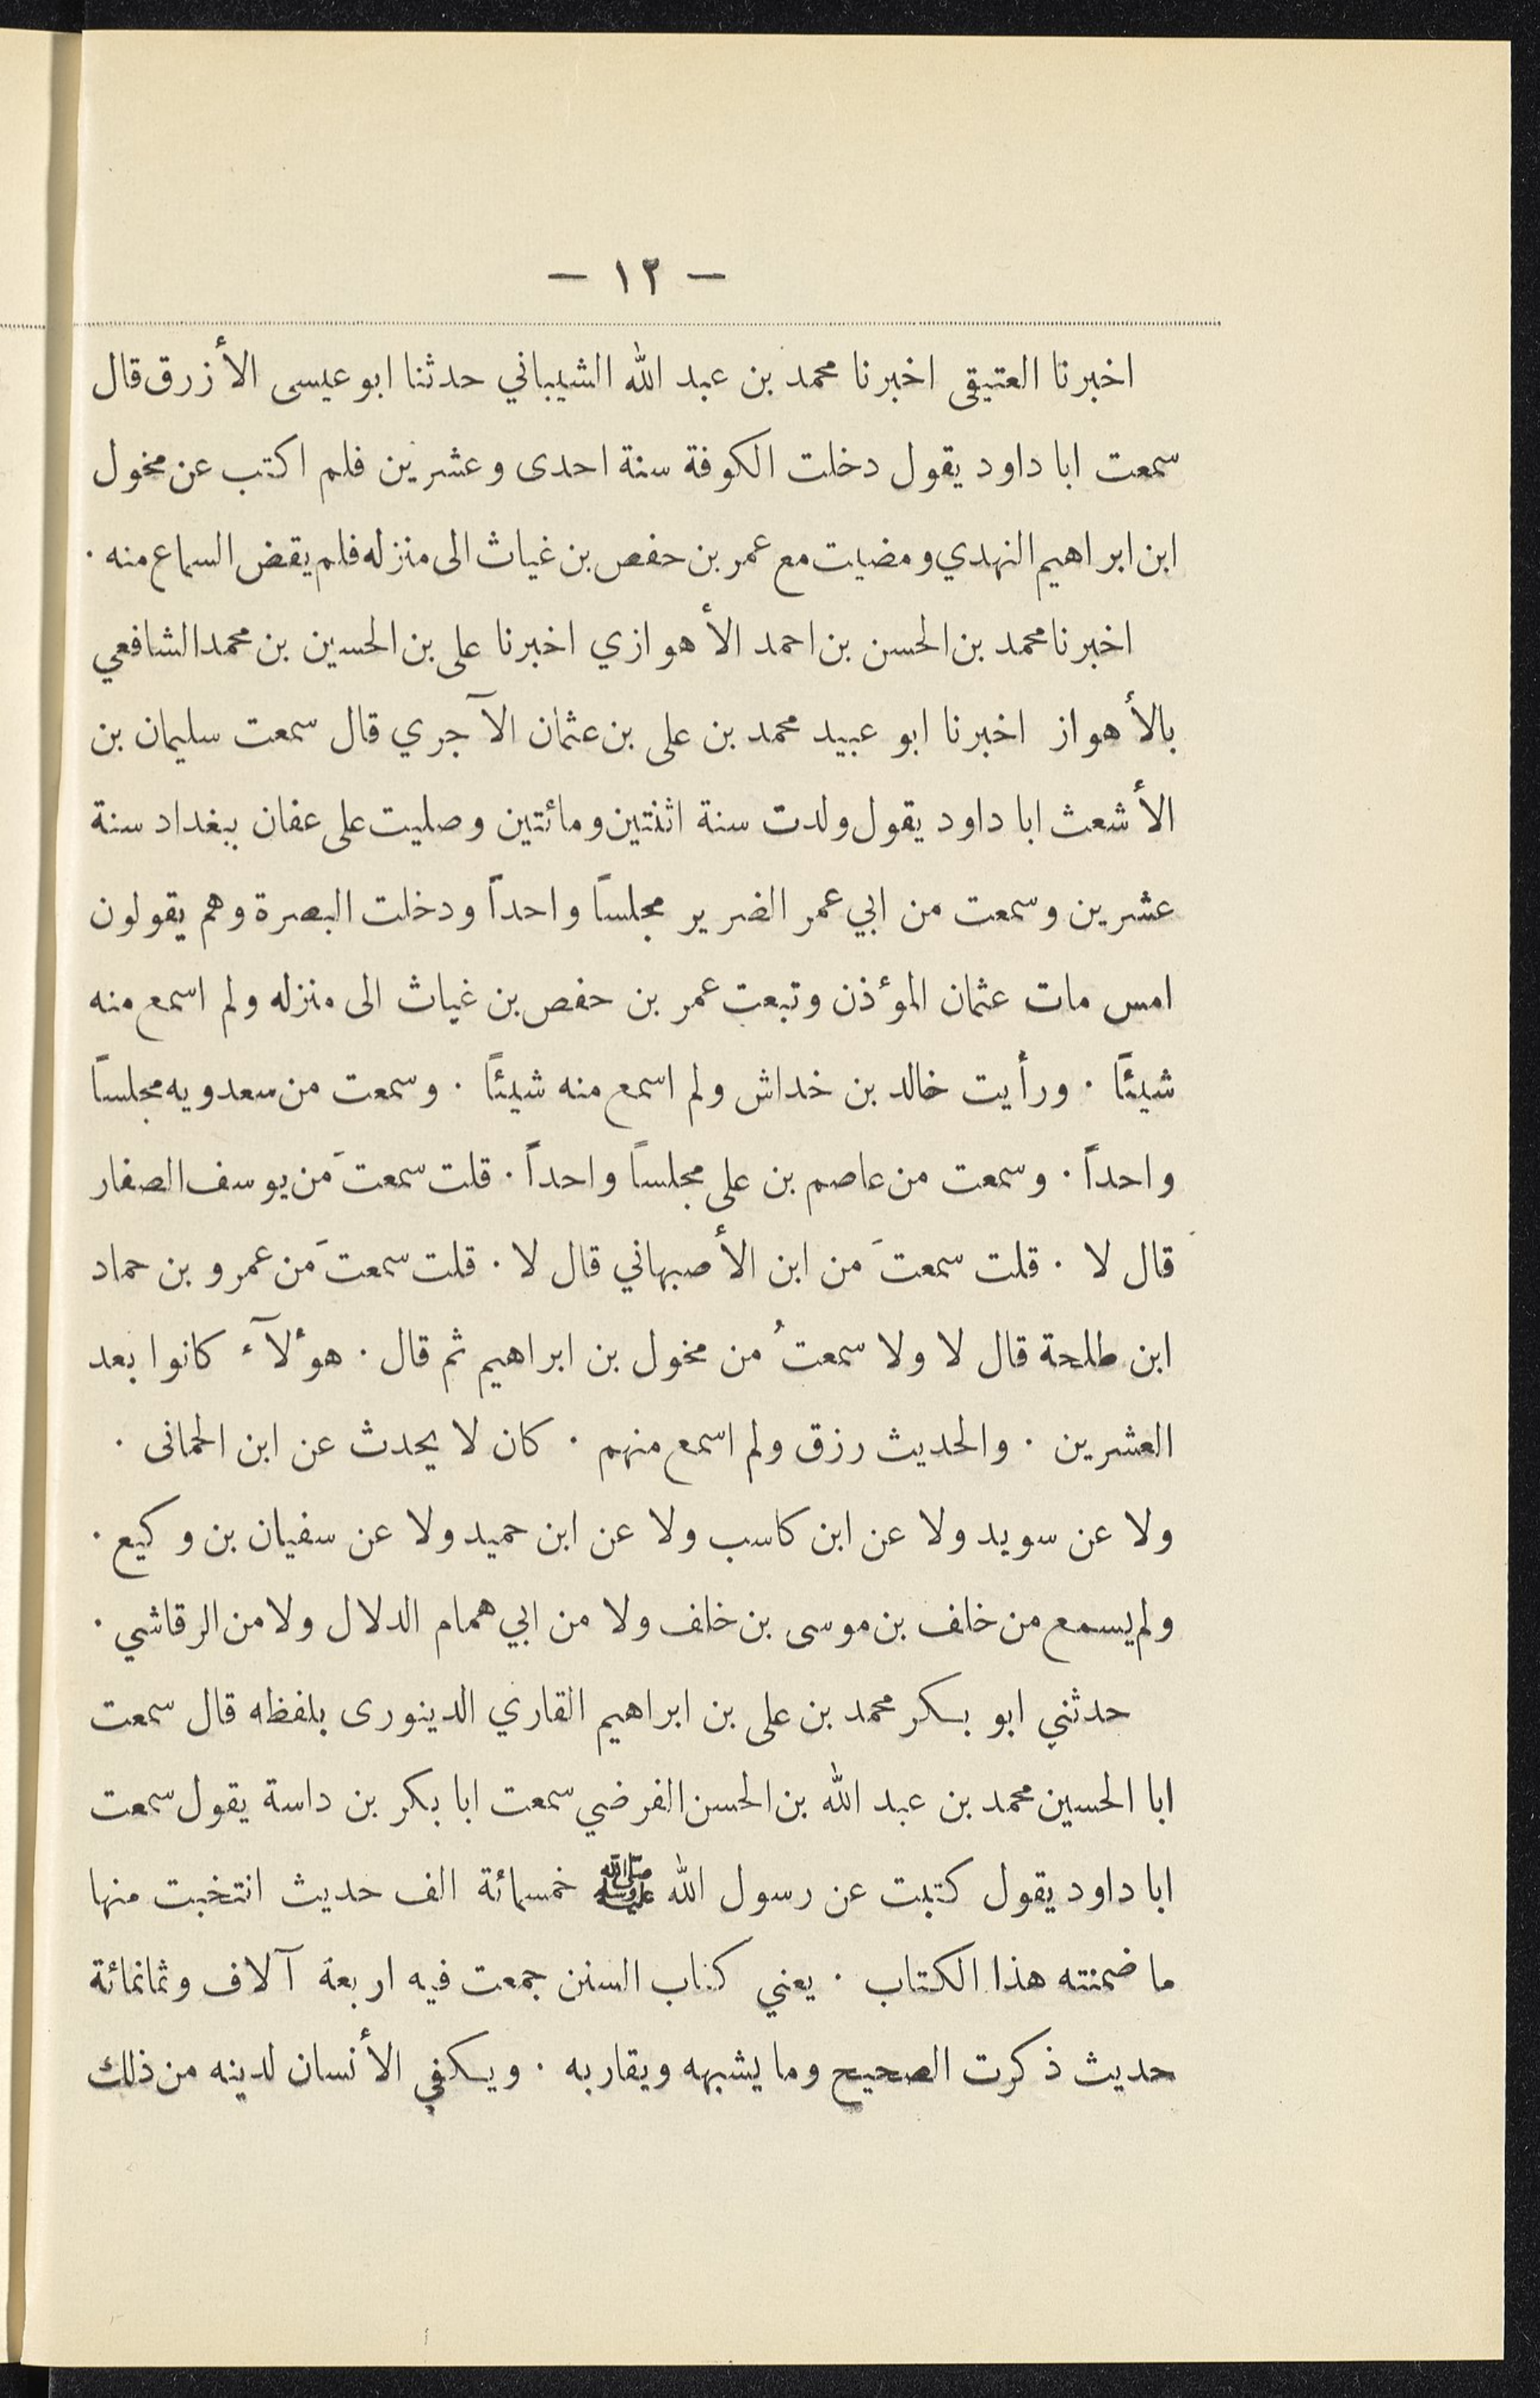 — ١٢ —
اخبرنا العتيقى اخبرنا محمد بن عبد الله الشيباني حدثنا ابو عيسى الأزرق قال
سمعت ابا داود يقول دخلت الكوفة سنة احدى وعشرين فلم اكتب عن مخول
ابن ابراهيم النهدي ومضيت مع عمر بن حفص بن غياث الى منزله فلم يقض السماع منه ٠
اخبرنا محمد بن الحسن بن احمد الأهوازي اخبرنا على بن الحسين بن محمد الشافعي
بالأهواز اخبرنا ابو عبيد محمد بن على بن عثمان الآجري قال سمعت سليمان بن
الأشعث ابا داود يقول ولدت سنة اثنتين ومائتين وصليت على عفان ببغداد سنة
عشرين وسمعت من ابي عمر الضرير مجلساً واحداً ودخلت البصرة وهم يقولون
امس مات عثمان المؤذن وتبعت عمر بن حفص بن غياث الى منزله ولم اسمع منه
شيئاً ٠ ورأيت خالد بن خداش ولم اسمع منه شيئاً ٠ وسمعت من سعدويه مجلساً
واحداً ٠ وسمعت من عاصم بن على مجلساً واحداً ٠ قلت سمعتَ من يوسف الصفار
قال لا ٠ قلت سمعتَ من ابن الأصبهاني قال لا ٠ قلت سمعتَ من عمرو بن حماد
ابن طلحة قال لا ولا سمعتُ من مخول بن ابراهيم ثم قال ٠ هؤلآء كانوا بعد
العشرين ٠ والحديث رزق ولم اسمع منهم ٠ كان لا يحدث عن ابن الحمانى ٠
ولا عن سويد ولا عن ابن كاسب ولا عن ابن حميد ولا عن سفيان بن وكيع ٠
ولم يسمع من خلف بن موسى بن خلف ولا من ابي همام الدلال ولا من الرقاشي ٠
حدثني ابو بكر محمد بن على بن ابراهيم القاري الدينورى بلفظه قال سمعت
ابا الحسين محمد بن عبد الله بن الحسن الفرضي سمعت ابا بكر بن داسة يقول سمعت
ابا داود يقول كتبت عن رسول الله ﷺ خمسمائة الف حديث انتخبت منها
ما ضمنته هذا الكتاب ٠ يعني كتاب السنن جمعت فيه اربعة آلاف وثمانمائة
حديث ذكرت الصحيح وما يشبهه ويقاربه ٠ ويكفي الأنسان لدينه من ذلك